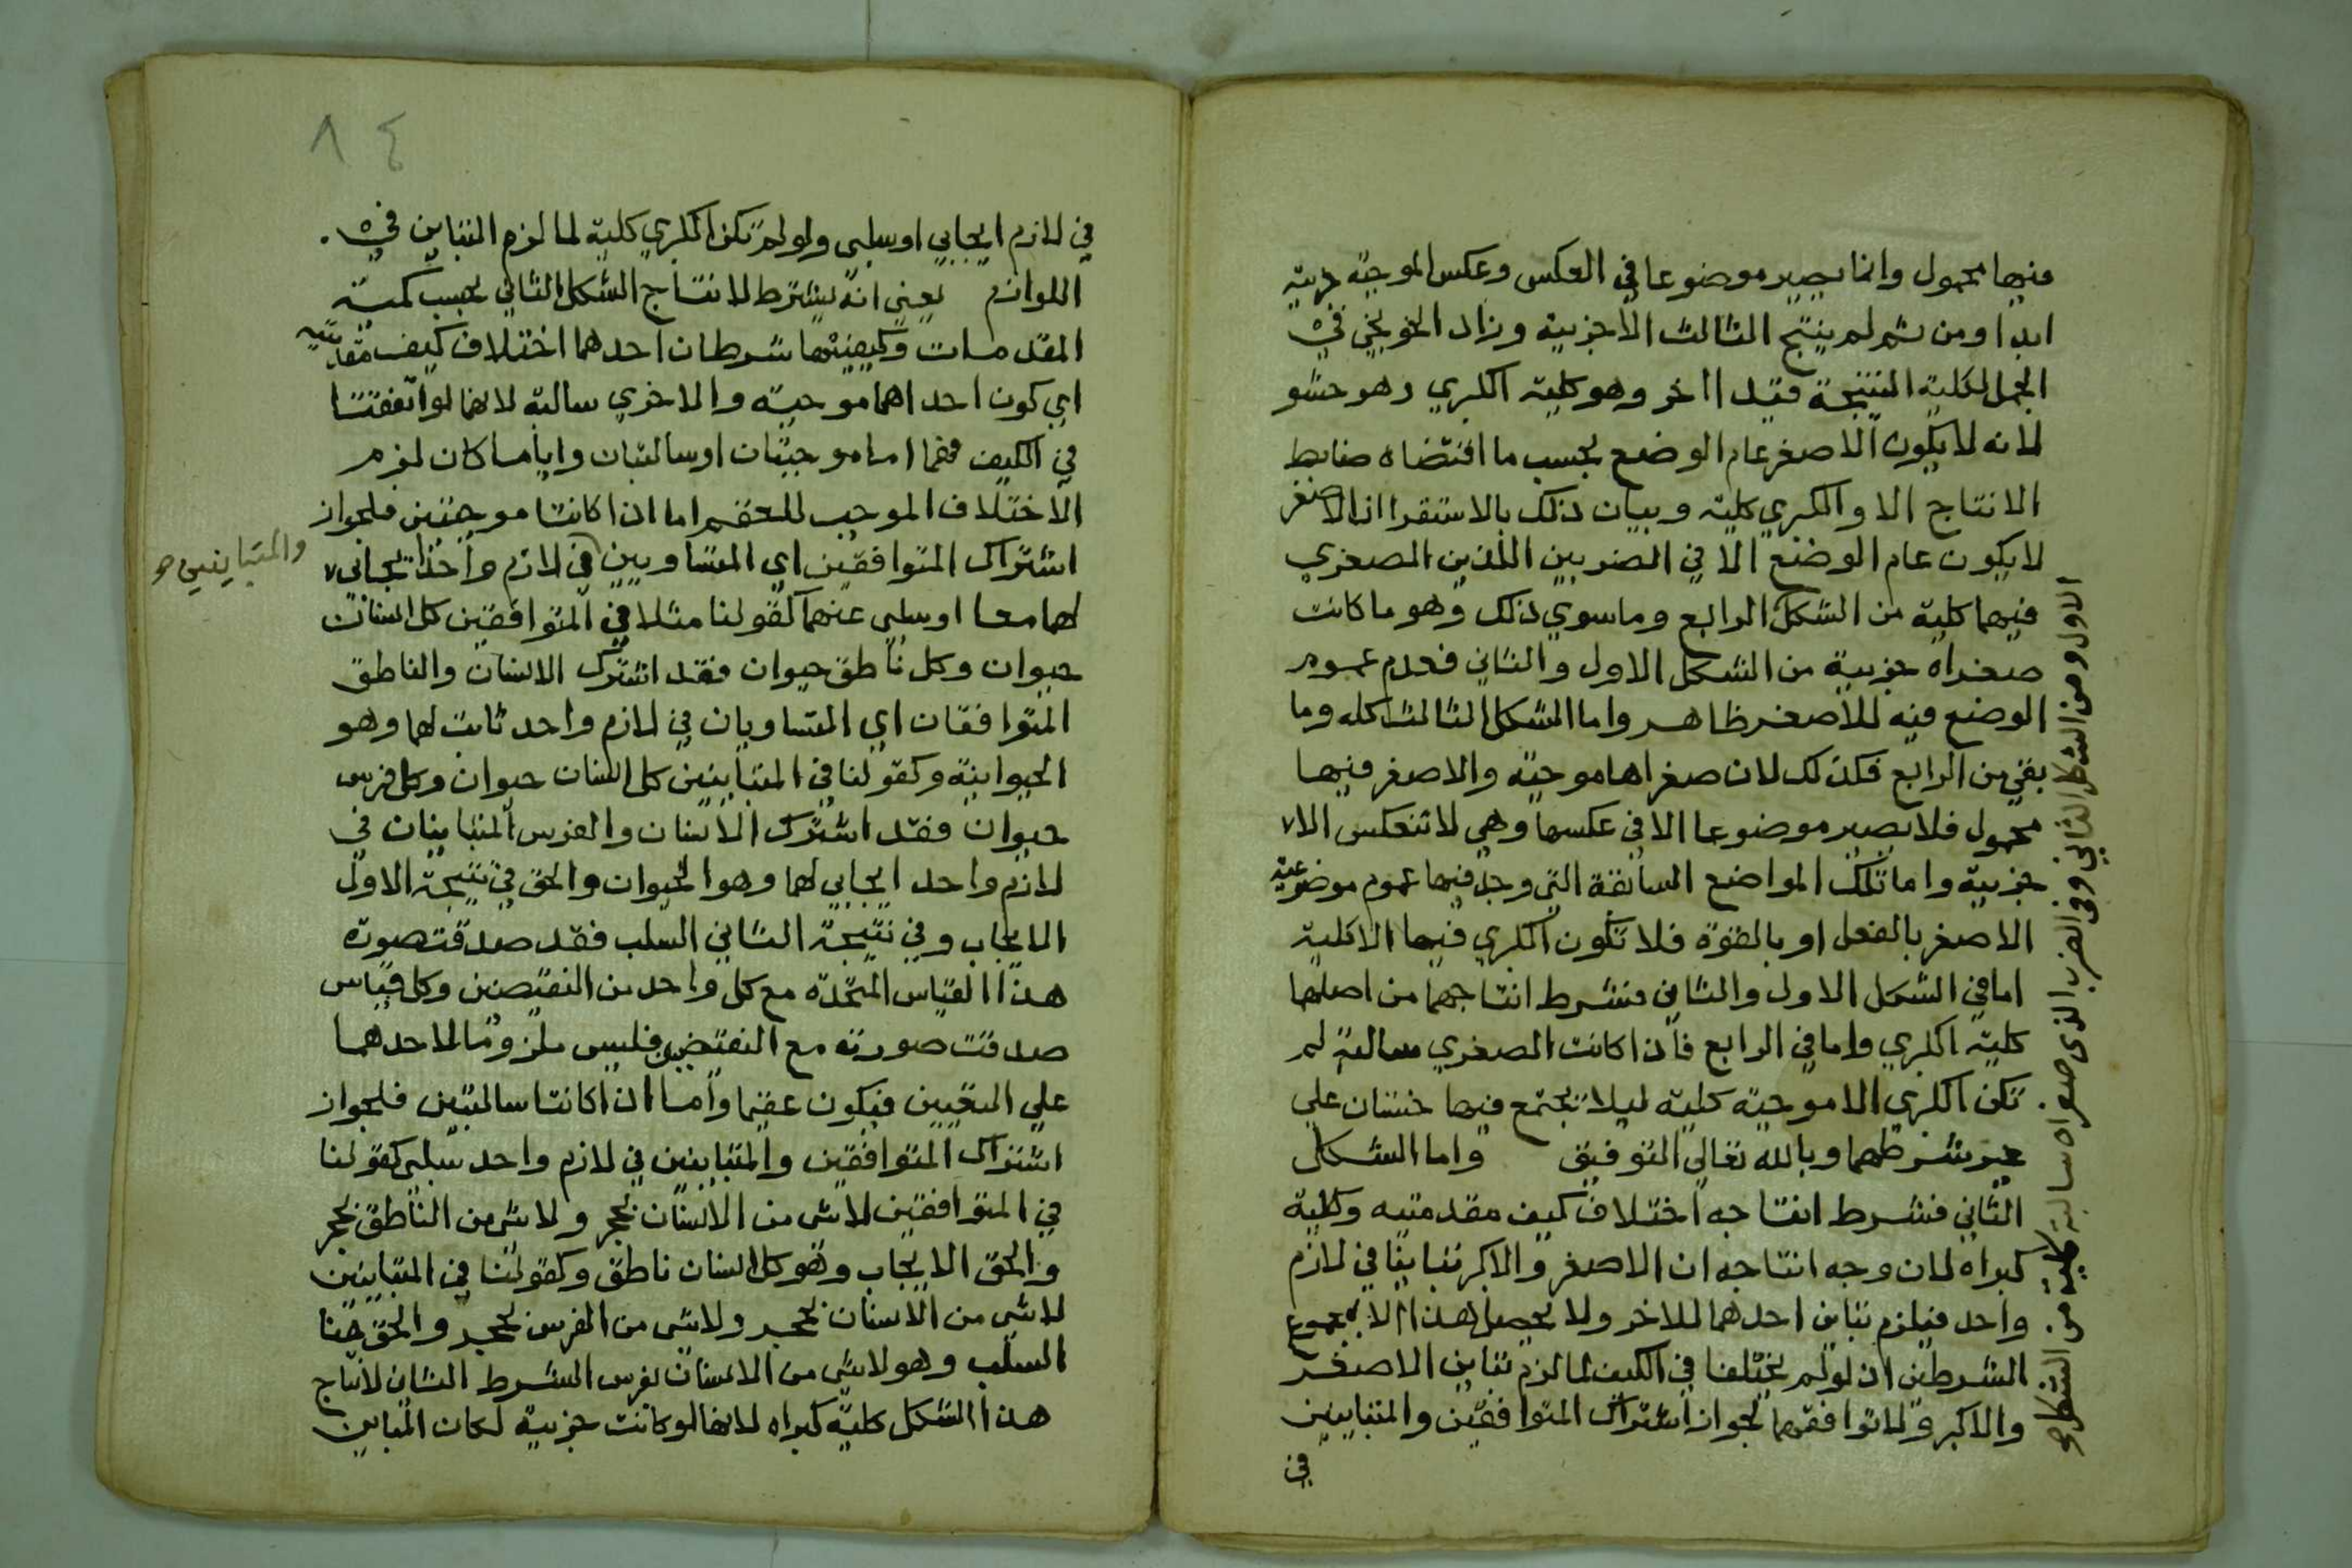 منها محمول وانما يصير موضوعا في العكس وعكس الموجبة جزئية
ابدا ومن ثم لم ينتج الثالث الا جزيية وزاد الخونجي في
الجمل الكلية المنتجة قيد ااخر وهو كلية الكبري وهو حشو
لانه لا يكون الاصغر عام الوضع بحسب ما اقتضاه ضابط
الانتاج الا والكبري كلية وبيان ذلك بالاستقرا ان الاصغر
لا يكون عام الوضع الا في الضربين اللذين الصغري
فيهما كلية من الشكل الرابع وما سوي ذلك وهو ما كانت
صغراه جزيية من الشكل الاول والثاني فعدم عموم
الوضع فيه للاصغر ظاهر واما الشكل الثالث كله وما
بقي من الرابع فكذلك لان صغراها موجبة والاصغر فيها
محمول فلا يصير موضوعا الا في عكسها وهي لا تنعكس الا
جزيية واما تلك المواضع السابقة التي وجد فيها عموم موضوعية
الاصغر بالفعل او بالقوة فلا تكون الكبري فيها الا كلية
اما في الشكل الاول والثاني فشرط انتاجهما من اصلهما
كلية الكبري واما في الرابع فان اكانت الصغري سالبة لم
تكن الكبري الا موجبة كلية ليلا تجتمع فيها خستان علي
غير شرطهما وبالله تعالي التوفيق واما الشكل
الثاني فشرط انتاجه اختلاف كيف مقدمتيه وكلية
كبراه لان وجه انتاجه ان الاصغر والاكبر تباينا في لازم
واحد فيلزم تباين احدهما للاخر ولا يحصل هذا الا بمجموع
الشرطين ان لو لم يختلفا في الكيف لما لزم تباين الاصغر
والاكبر ولا توافقهما لجواز اشتراك المتوافقين والمتباينين
في
الاول ومن الشكل الثاني وفي الضرب الذي صغراه سالبة كلية من الشكل
٨٤
في لازم ايجابي او سلبي ولو لم تكن الكبري كلية لما لزم التباين في
اللوازم يعني انه يشترط لانتاج الشكل الثاني بحسب كمية
المقدمات وكيفيتها شرطان احدهما اختلاف كيف مقدمتيه
اي كون احداهما موجبة والاخري سالبة لانهما لو اتفقتا
في الكيف فهما اما موجبتان او سالبتان وايا ما كان لزم
الاختلاف الموجب للعقم اما ان اكانتا موجبتين فلجواز
اشتراك المتوافقين اي المتساويين في لازم واحد ايجابي
والمتباينين
لهما معا او سلبي عنهما كقولنا مثلا في المتوافقين كل انسان
حيوان وكل ناطق حيوان فقد اشترك الانسان والناطق
المتوافقان اي المتساويان في لازم واحد ثابت لهما وهو
الحيوانية وكقولنا في المتباينين كل انسان حيوان وكل فرس
حيوان فقد اشترك الانسان والفرس المتباينان في
لازم واحد ايجابي لهما وهو الحيوان والحق في نتيجة الاول
الايجاب وفي نتيجة الثاني السلب فقد صدقت صورة
هذا القياس المتحدة مع كل واحد من النقيضين وكل قياس
صدقت صورته مع النقيضين فليس ملزوما لاحدهما
علي اليقين فيكون عقيما واما ان اكانتا سالبتين فلجواز
اشتراك المتوافقين والمتباينين في لازم واحد سلبي كقولنا
في المتوافقين لا شي من الانسان بحجر ولا شي من الناطق بحجر
والحق الايجاب وهو كل انسان ناطق وكقولنا في المتباينين
لا شي من الانسان بحجر ولا شي من الفرس بحجر والحق هنا
السلب وهو لا شي من الانسان بفرس الشرط الثاني لانتاج
هذا الشكل كلية كبراه لانها لو كانت جزيية لكان التباين